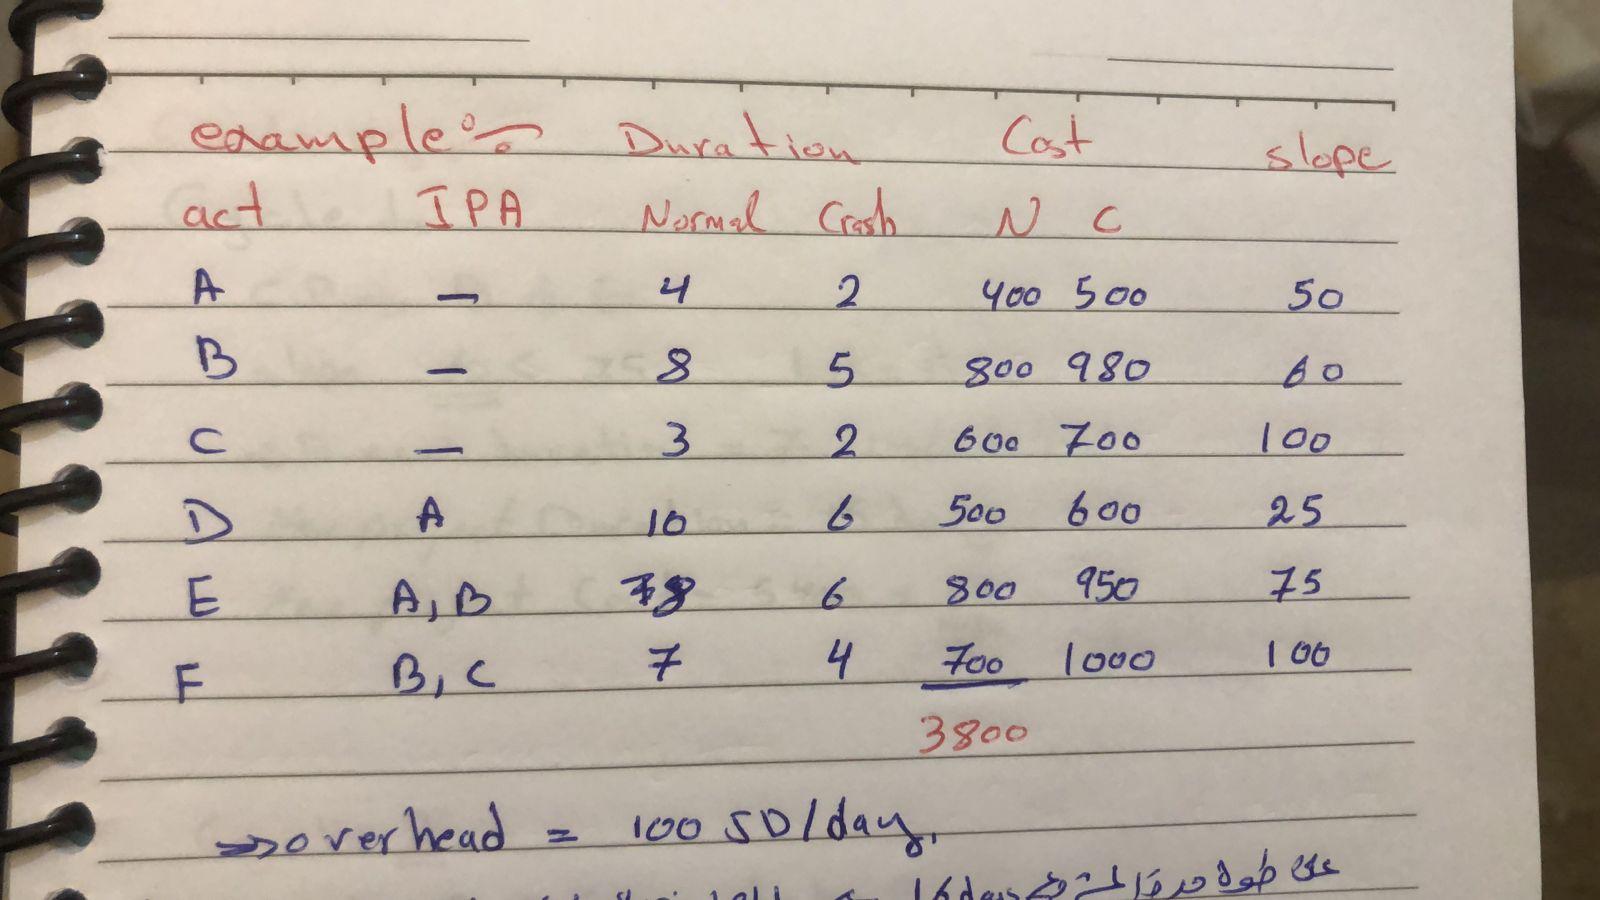 example:- Duration Cost slope
act IPA Normal Crash N C
A — 4 2 400 500 50
B — 8 5 800 980 60
C — 3 2 600 700 100
D A 10 6 500 600 25
E A, B 8 6 800 950 75
F B, C 7 4 700 1000 100
3800
⇒ overhead = 100 SD/day.
16 days